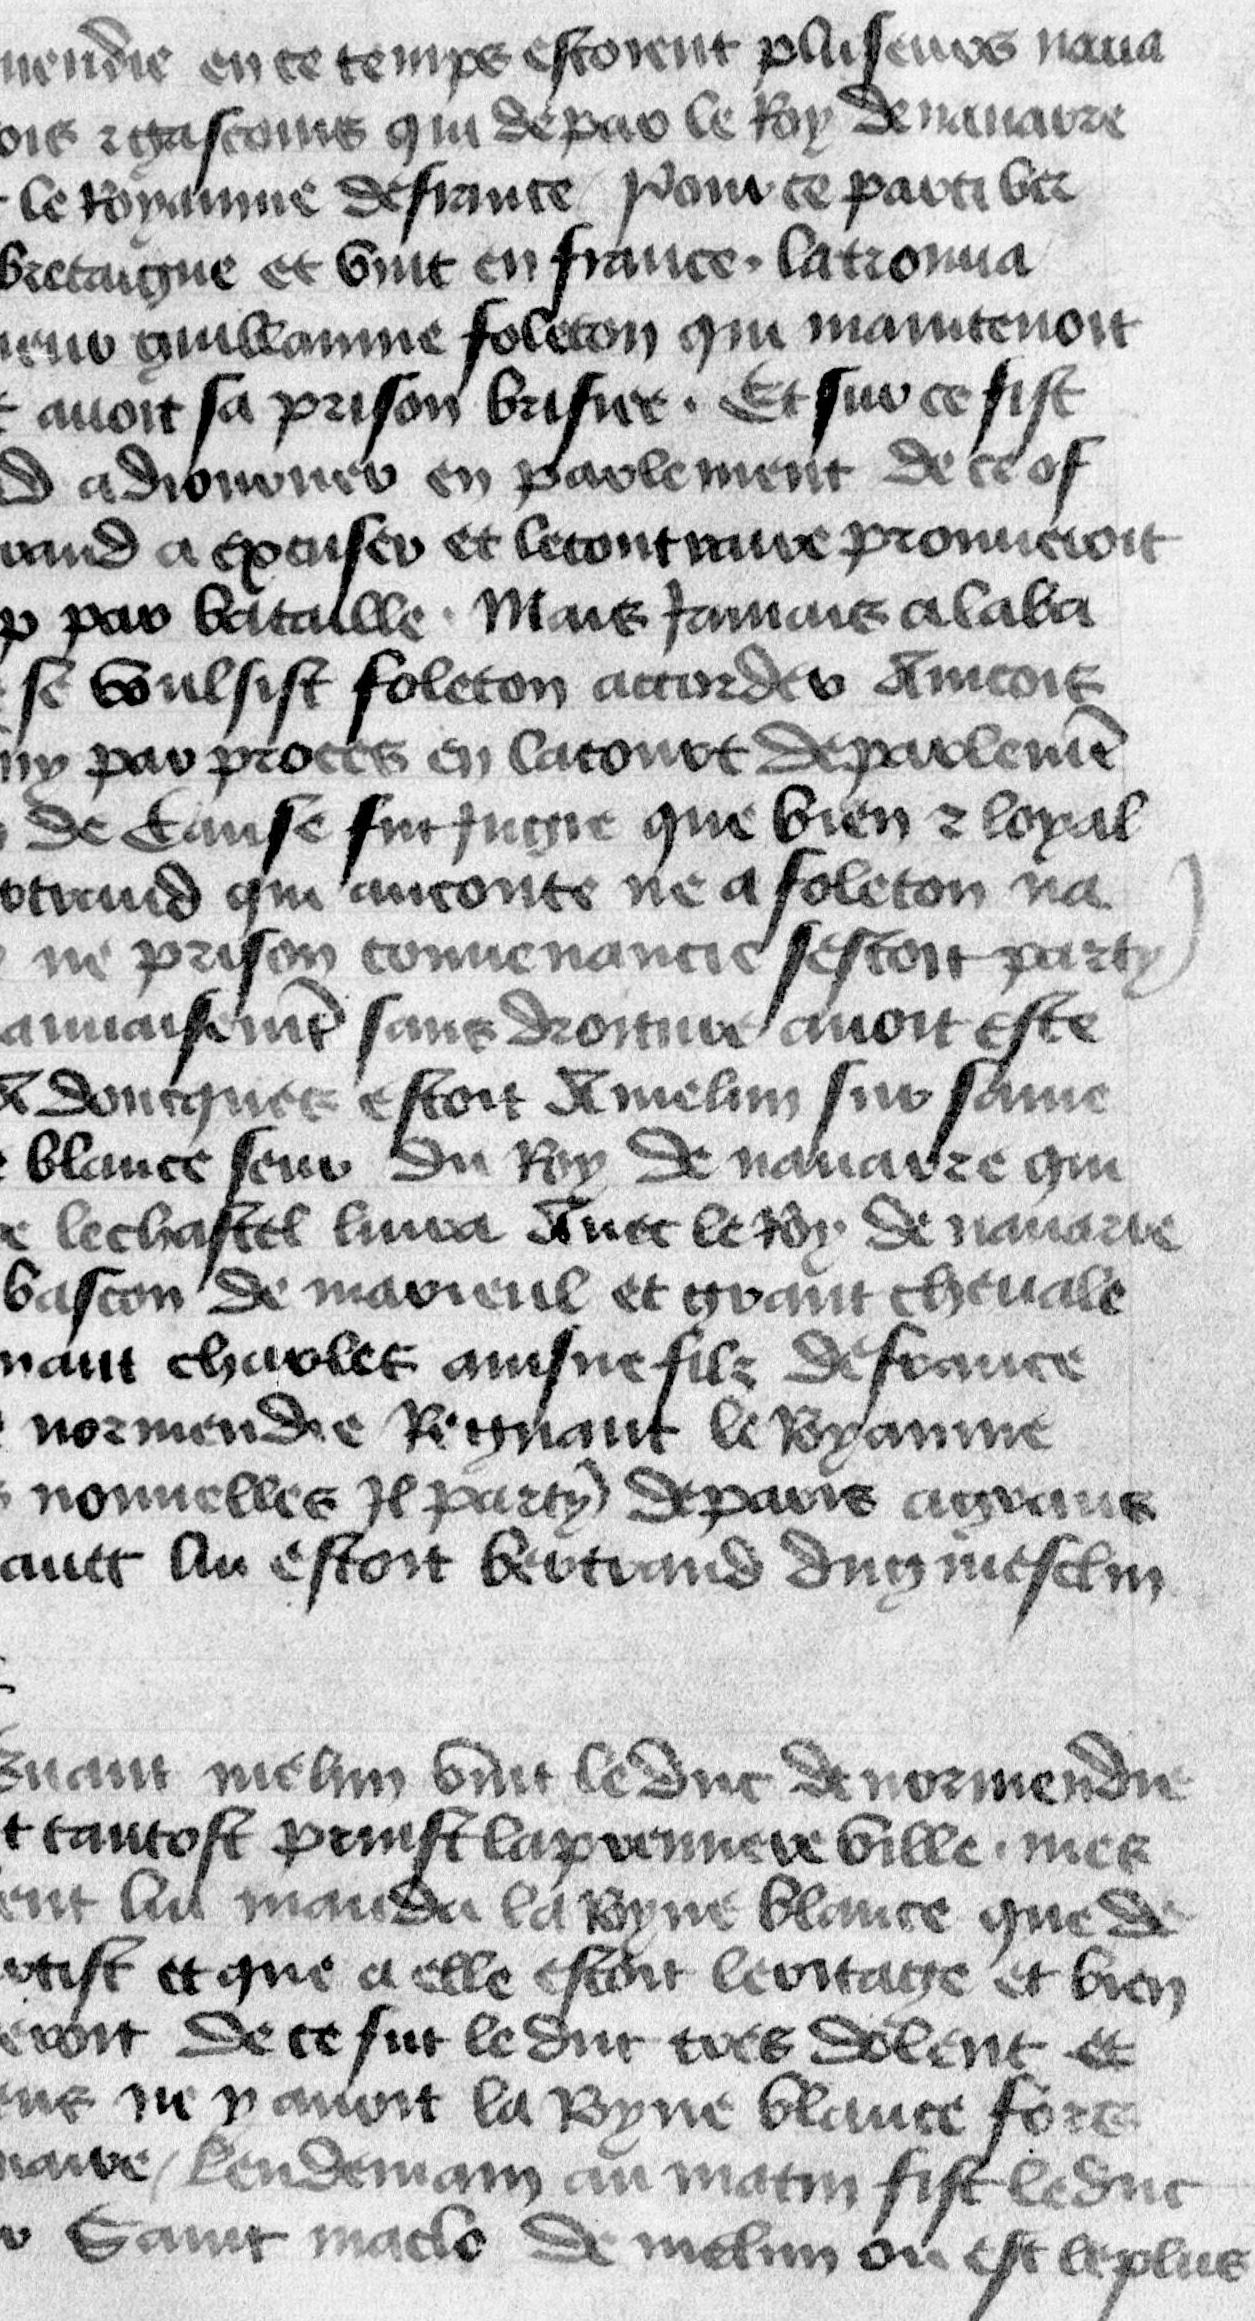 mendie en ce temps estoient pluseurs naua
ois ⁊ gascoins qui de par le Roy de nauarre
le Royaume de france / Pour ce parti ber
bretaigne et vint en france . la trouua
ieur guillaume foleton qui maintenoit
t auoit sa prison brisiee . Et sur ce fist
d adiourner en parlement de ce of
rand a excuser et le contraire prouueroit
p par bataille . Mais jamais a la ba
se voulsist foleton accorder Aincois
ny par proces en la court de parlemẽt
de cause fut jugie que bien ⁊ loyal
rtrand qui au conte ne a foleton na
ne prison conuenancie sestoit party
auuaisemẽt sans droiture auoit este
Adoncques estoit A melun sur saine
e blance seur du Roy de nauarre qui
re le chastel liura Auec le Roy de nauarre
bascon de mareul et grant cheuale
nant charles ainsne filz de france
normendie Regnant le Royaume
s nouuelles Jl party de paris a grans
auec lui estoit bertrand du guiesclin
Deuant melun vint le duc de normendie
t tantost prinst la premiere ville . mes
ent lui manda la Royne blance que de
rtist et que a elle estoit leritage et bien
eroit De ce fut le duc tres dolent et
ens ne y auoit la Royne blance fors
nauarre / Lendemain au matin fist le duc
r Saint maclo de melun ou est le plus